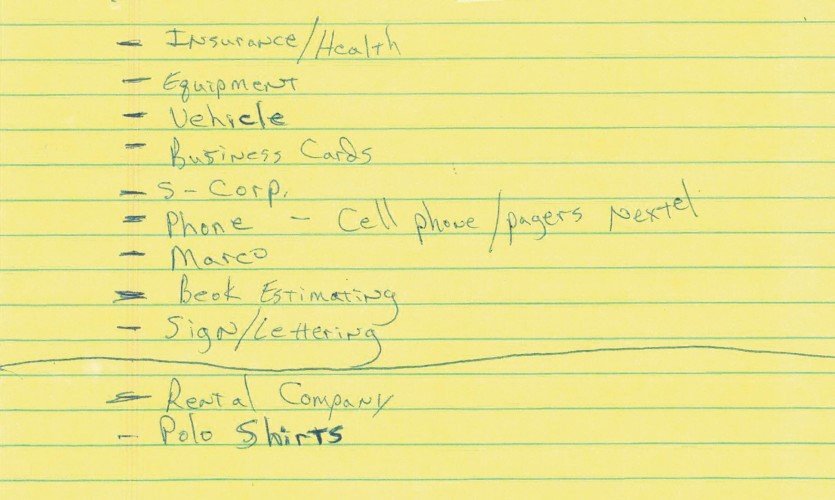 - Insurance/Health
- Equipment
- Vehicle
- Business Cards
- S-Corp.
- Phone - Cell phone/pagers Nextel
- Marco
- Book Estimating
- Sign/Lettering
- Rental Company
- Polo Shirts